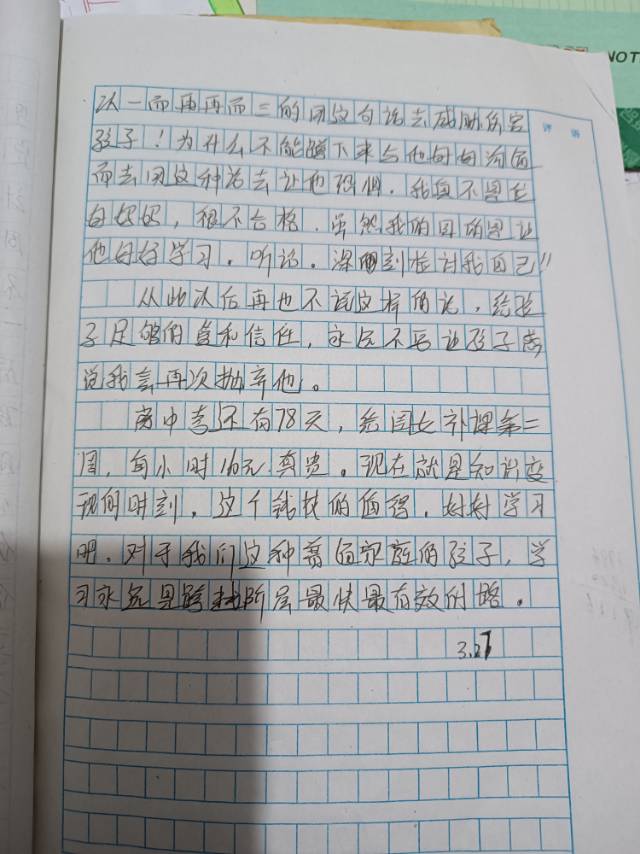 NOT
评 语
以一而再再而三的用这句话去威胁伤害
孩子!为什么不能蹲下来与他好好沟通
而去用这种话去让他恐惧,我真不是个
白妈妈,很不合格.虽然我的目的是让
他好好学习,听话。深刻检讨我自己!!
从此以后再也不说这样的话,给孩
子足够的爱和信任,永远不要让孩子
说我会再次抛弃他。
离中考还有78天,给闺长补课第二
周,每小时160元,真贵。现在就是知识变
现的时刻,这个钱花的值得,好好学习
吧,对于我们这种普通家庭的孩子,学
习永远是跨越阶层最快最有效的路。
3.27